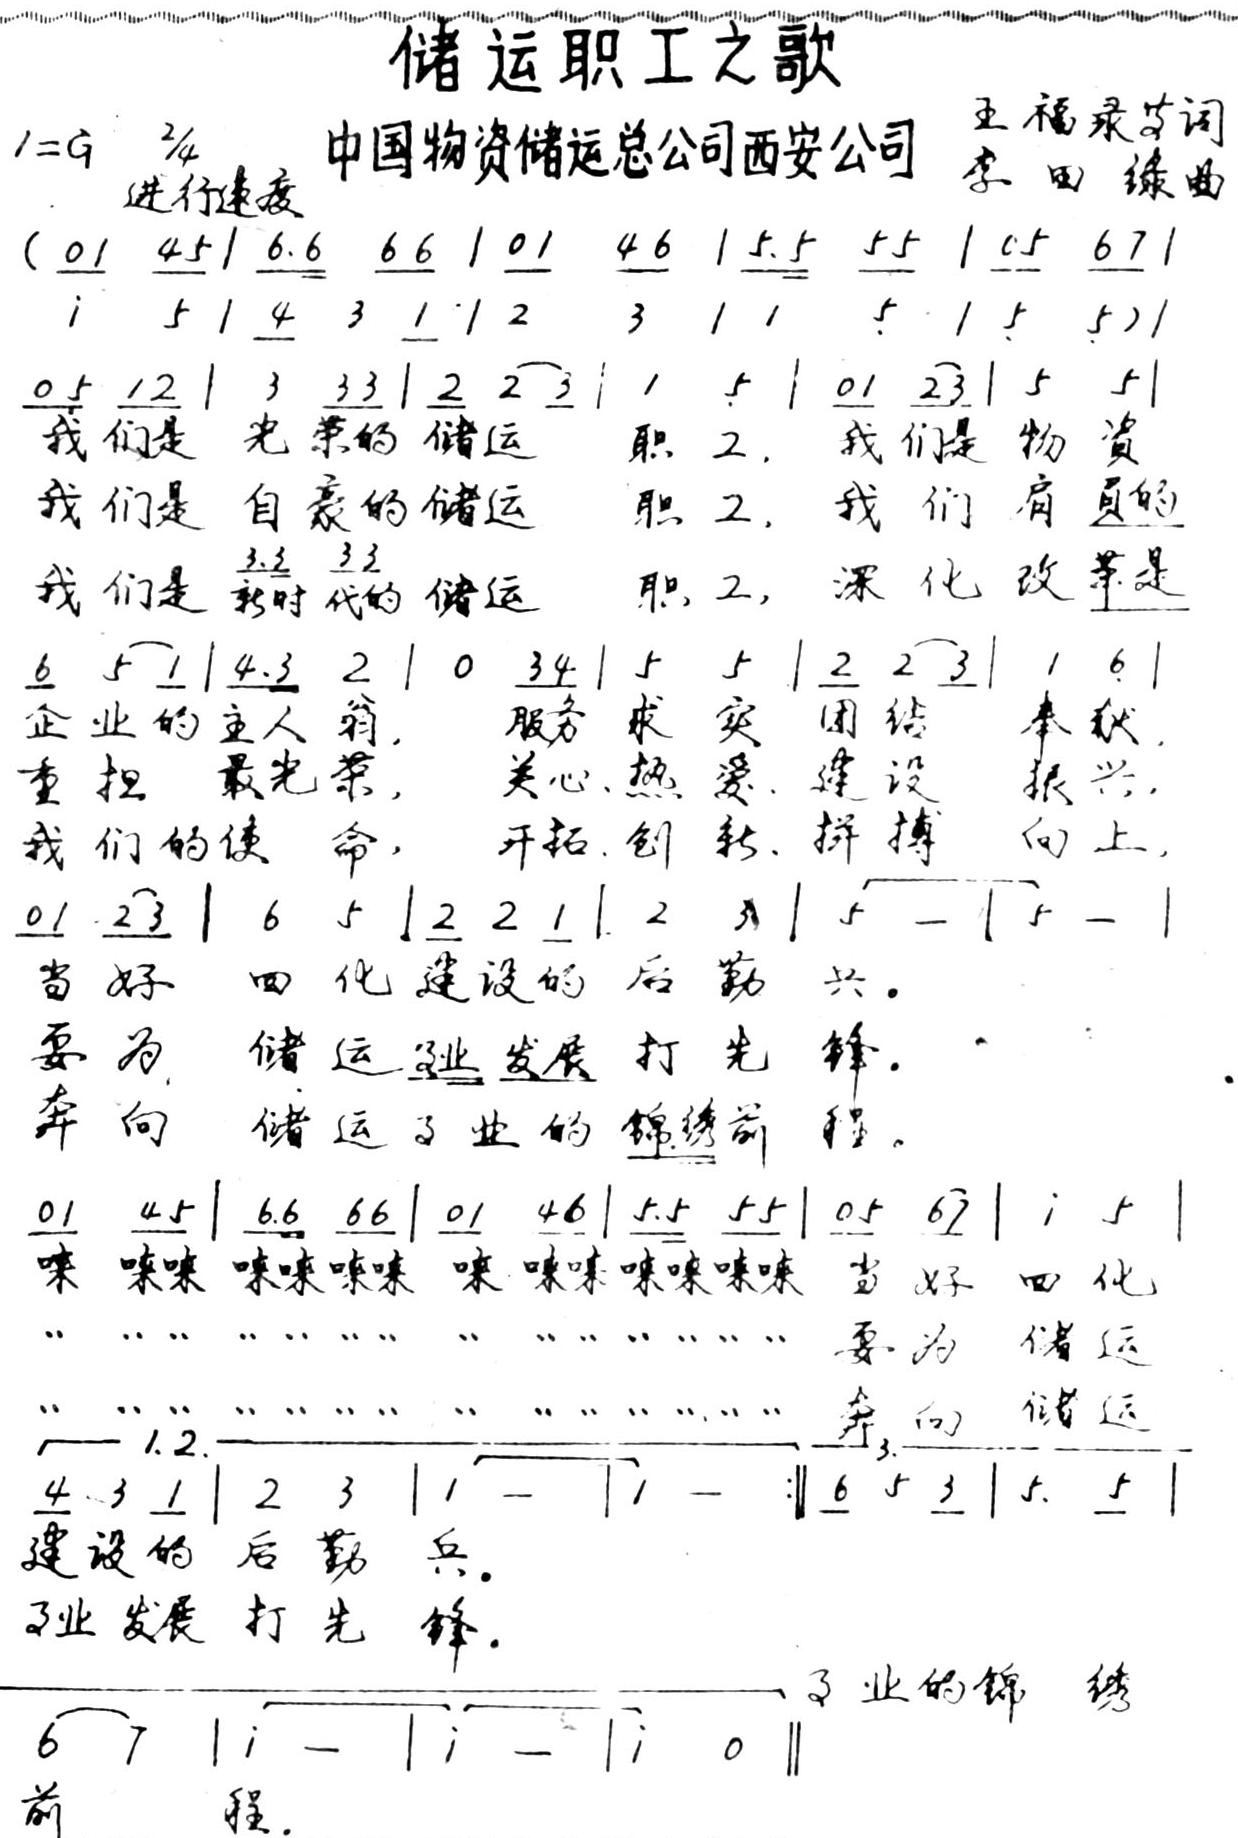 储运职工之歌
中国物资储运总公司西安公司
王福录等词
李田绿曲
1=G 2/4
进行速度
(01 45 | 6.6 66 | 01 46 | 5.5 55 | 05 67 |
i 5 | 4 3 1 | 2 3 | 1 5 | 5 5) |
05 12 | 3 33 | 2 2 3 | 1 5 | 01 23 | 5 5 |
我们是 光荣的储运 职工, 我们是物资
我们是 自豪的储运 职工, 我们肩负的
3.3 33
我们是 新时代的储运 职工, 深化改革是
6 5 1 | 4.3 2 | 0 34 | 5 5 | 2 2 3 | 1 6 |
企业的主人翁, 服务求实团结 奉献,
重担 最光荣, 关心、热爱、建设 振兴,
我们的使命, 开拓、创新、拼搏 向上,
01 23 | 6 5 | 2 2 1 | 2 3 | 5 – | 5 – |
当好 四化建设的后勤 兵。
要为 储运事业发展打先 锋。
奔向 储运事业的锦绣前 程。
01 45 | 6.6 66 | 01 46 | 5.5 55 | 05 67 | i 5 |
唻 唻唻 唻唻唻唻 唻 唻唻 唻唻唻唻 当好 四化
" " " " " " " " " " " " " " 要为 储运
" " " " " " " " " " " " " " 奔向 储运
1.2. 3.
4 3 1 | 2 3 | 1 – | 1 – :‖ 6 5 3 | 5. 5 |
建设的 后勤 兵。
事业发展 打先 锋。
事业的锦 绣
6 7 | i – | i – | i 0 ‖
前 程.